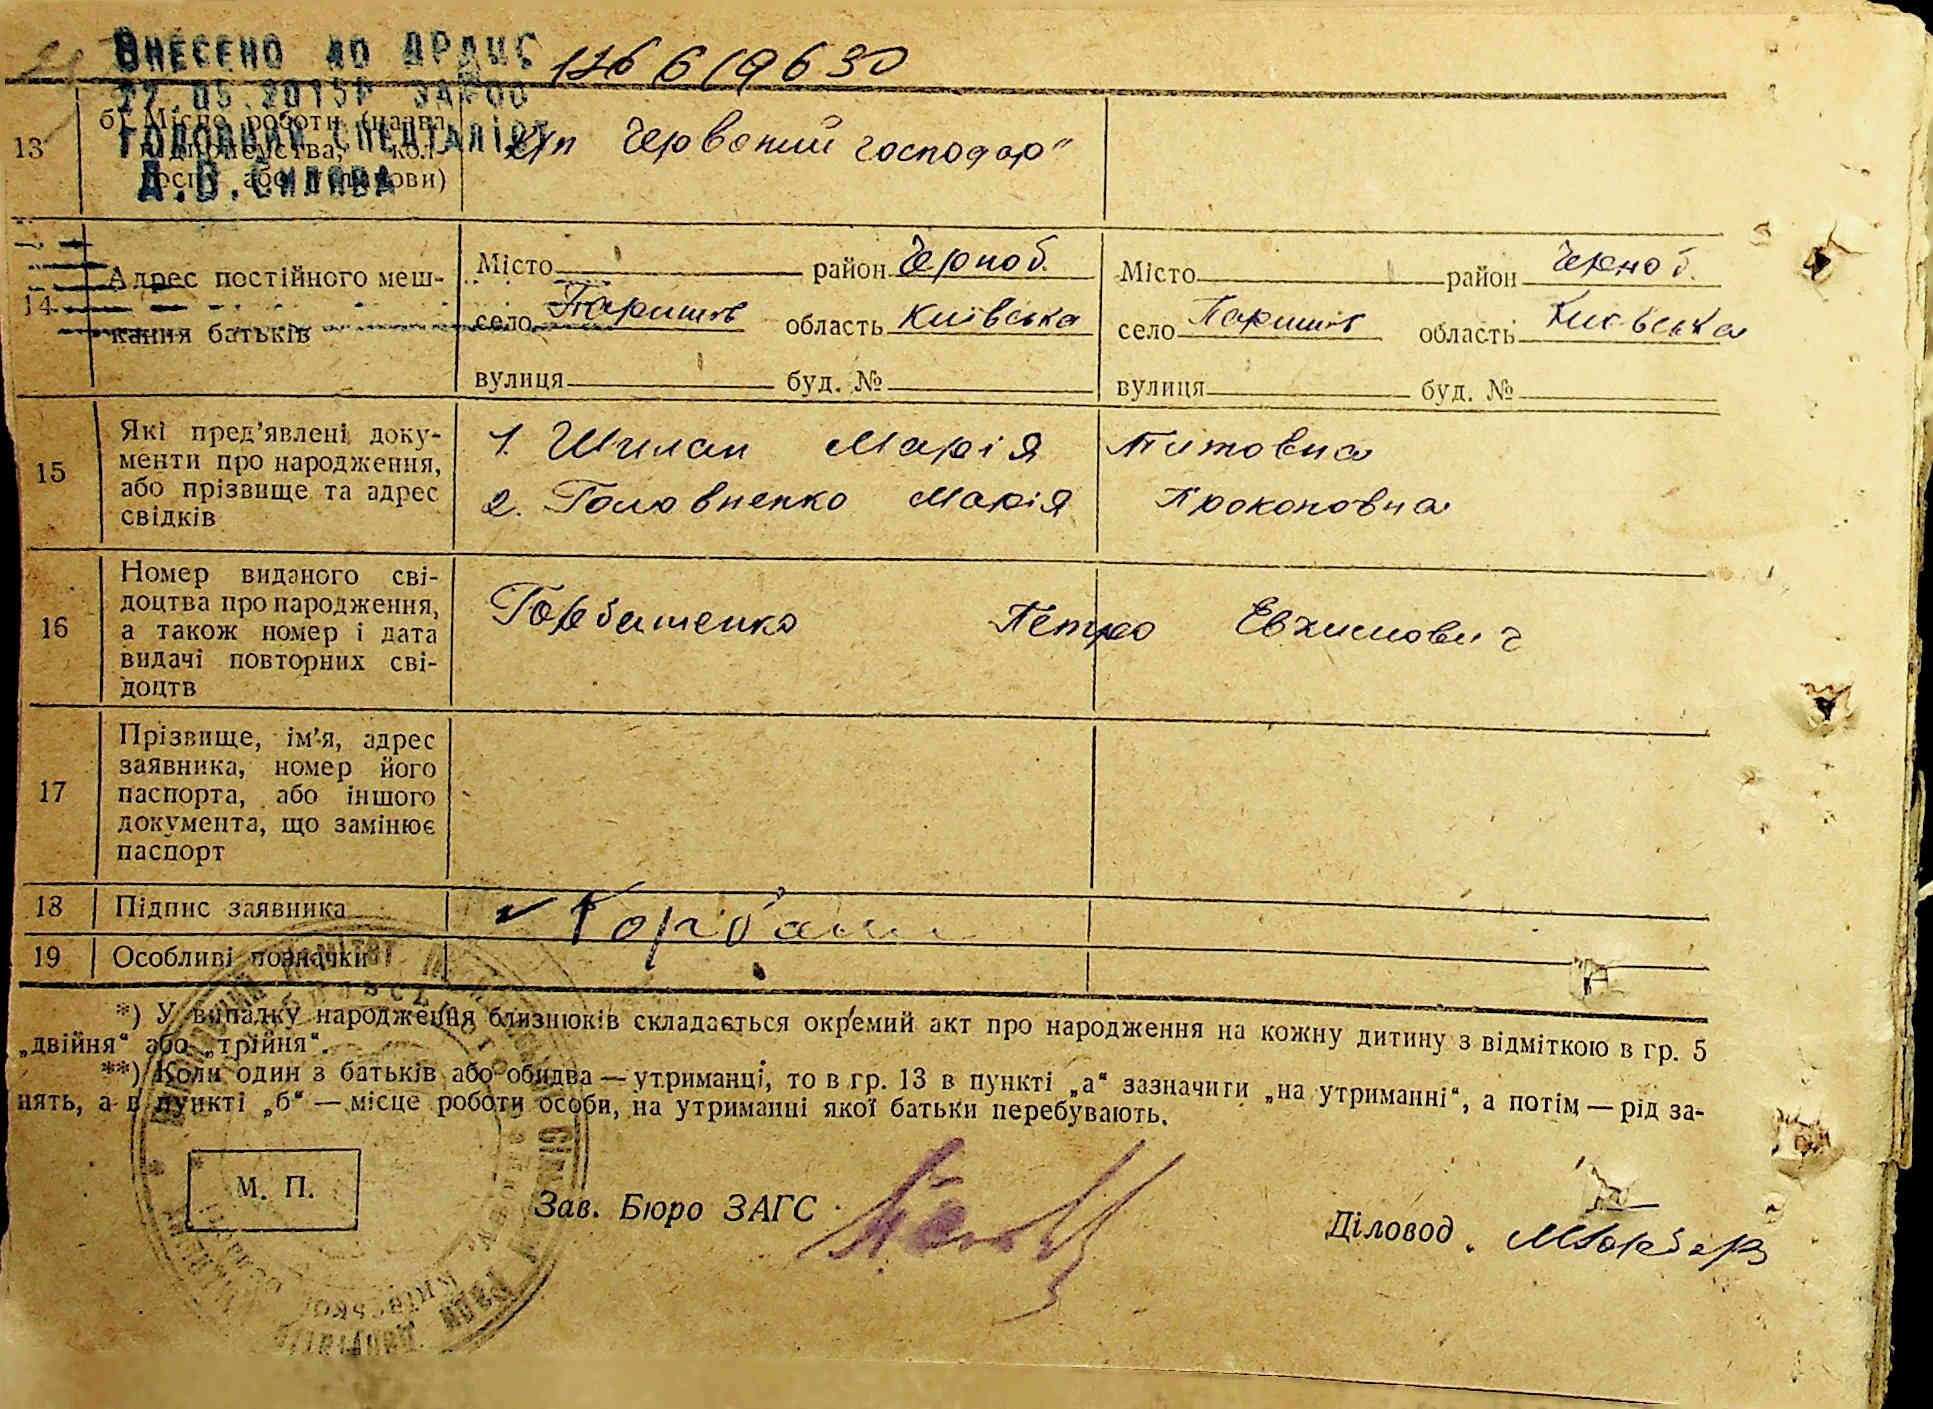 Внесено до ДРАЦС
27.05.2015р
головний спеціаліст
13
б) Місце роботи (назва
підприємства, кол-
госпу або установи)
Червоний господар"
14
Адрес постійного меш-
кання батьків
Місто район Черноб.
село Паришів область Київська
вулиця буд. №
Місто район Черноб.
село Паришів область Київська
вулиця буд. №
15
Які пред'явлені доку-
менти про народження,
або прізвище та адрес
свідків
1. Шилан Марія Титовна
2. Головненко Марія Прокоповна
16
Номер виданого сві-
доцтва про народження,
а також номер і дата
видачі повторних сві-
доцтв
Горбатенко Петро Евхимович
17
Прізвище, ім'я, адрес
заявника, номер його
паспорта, або іншого
документа, що замінює
паспорт
18
Підпис заявника
19
Особливі позначки
*) У випадку народження близнюків складається окремий акт про народження на кожну дитину з відміткою в гр. 5
„двійня“ або „трійня“.
**) Коли один з батьків або обидва — утриманці, то в гр. 13 в пункті „а“ зазначити „на утриманні“, а потім — рід за-
нять, а в пункті „б“ — місце роботи особи, на утриманні якої батьки перебувають.
М. П.
Зав. Бюро ЗАГС
Діловод